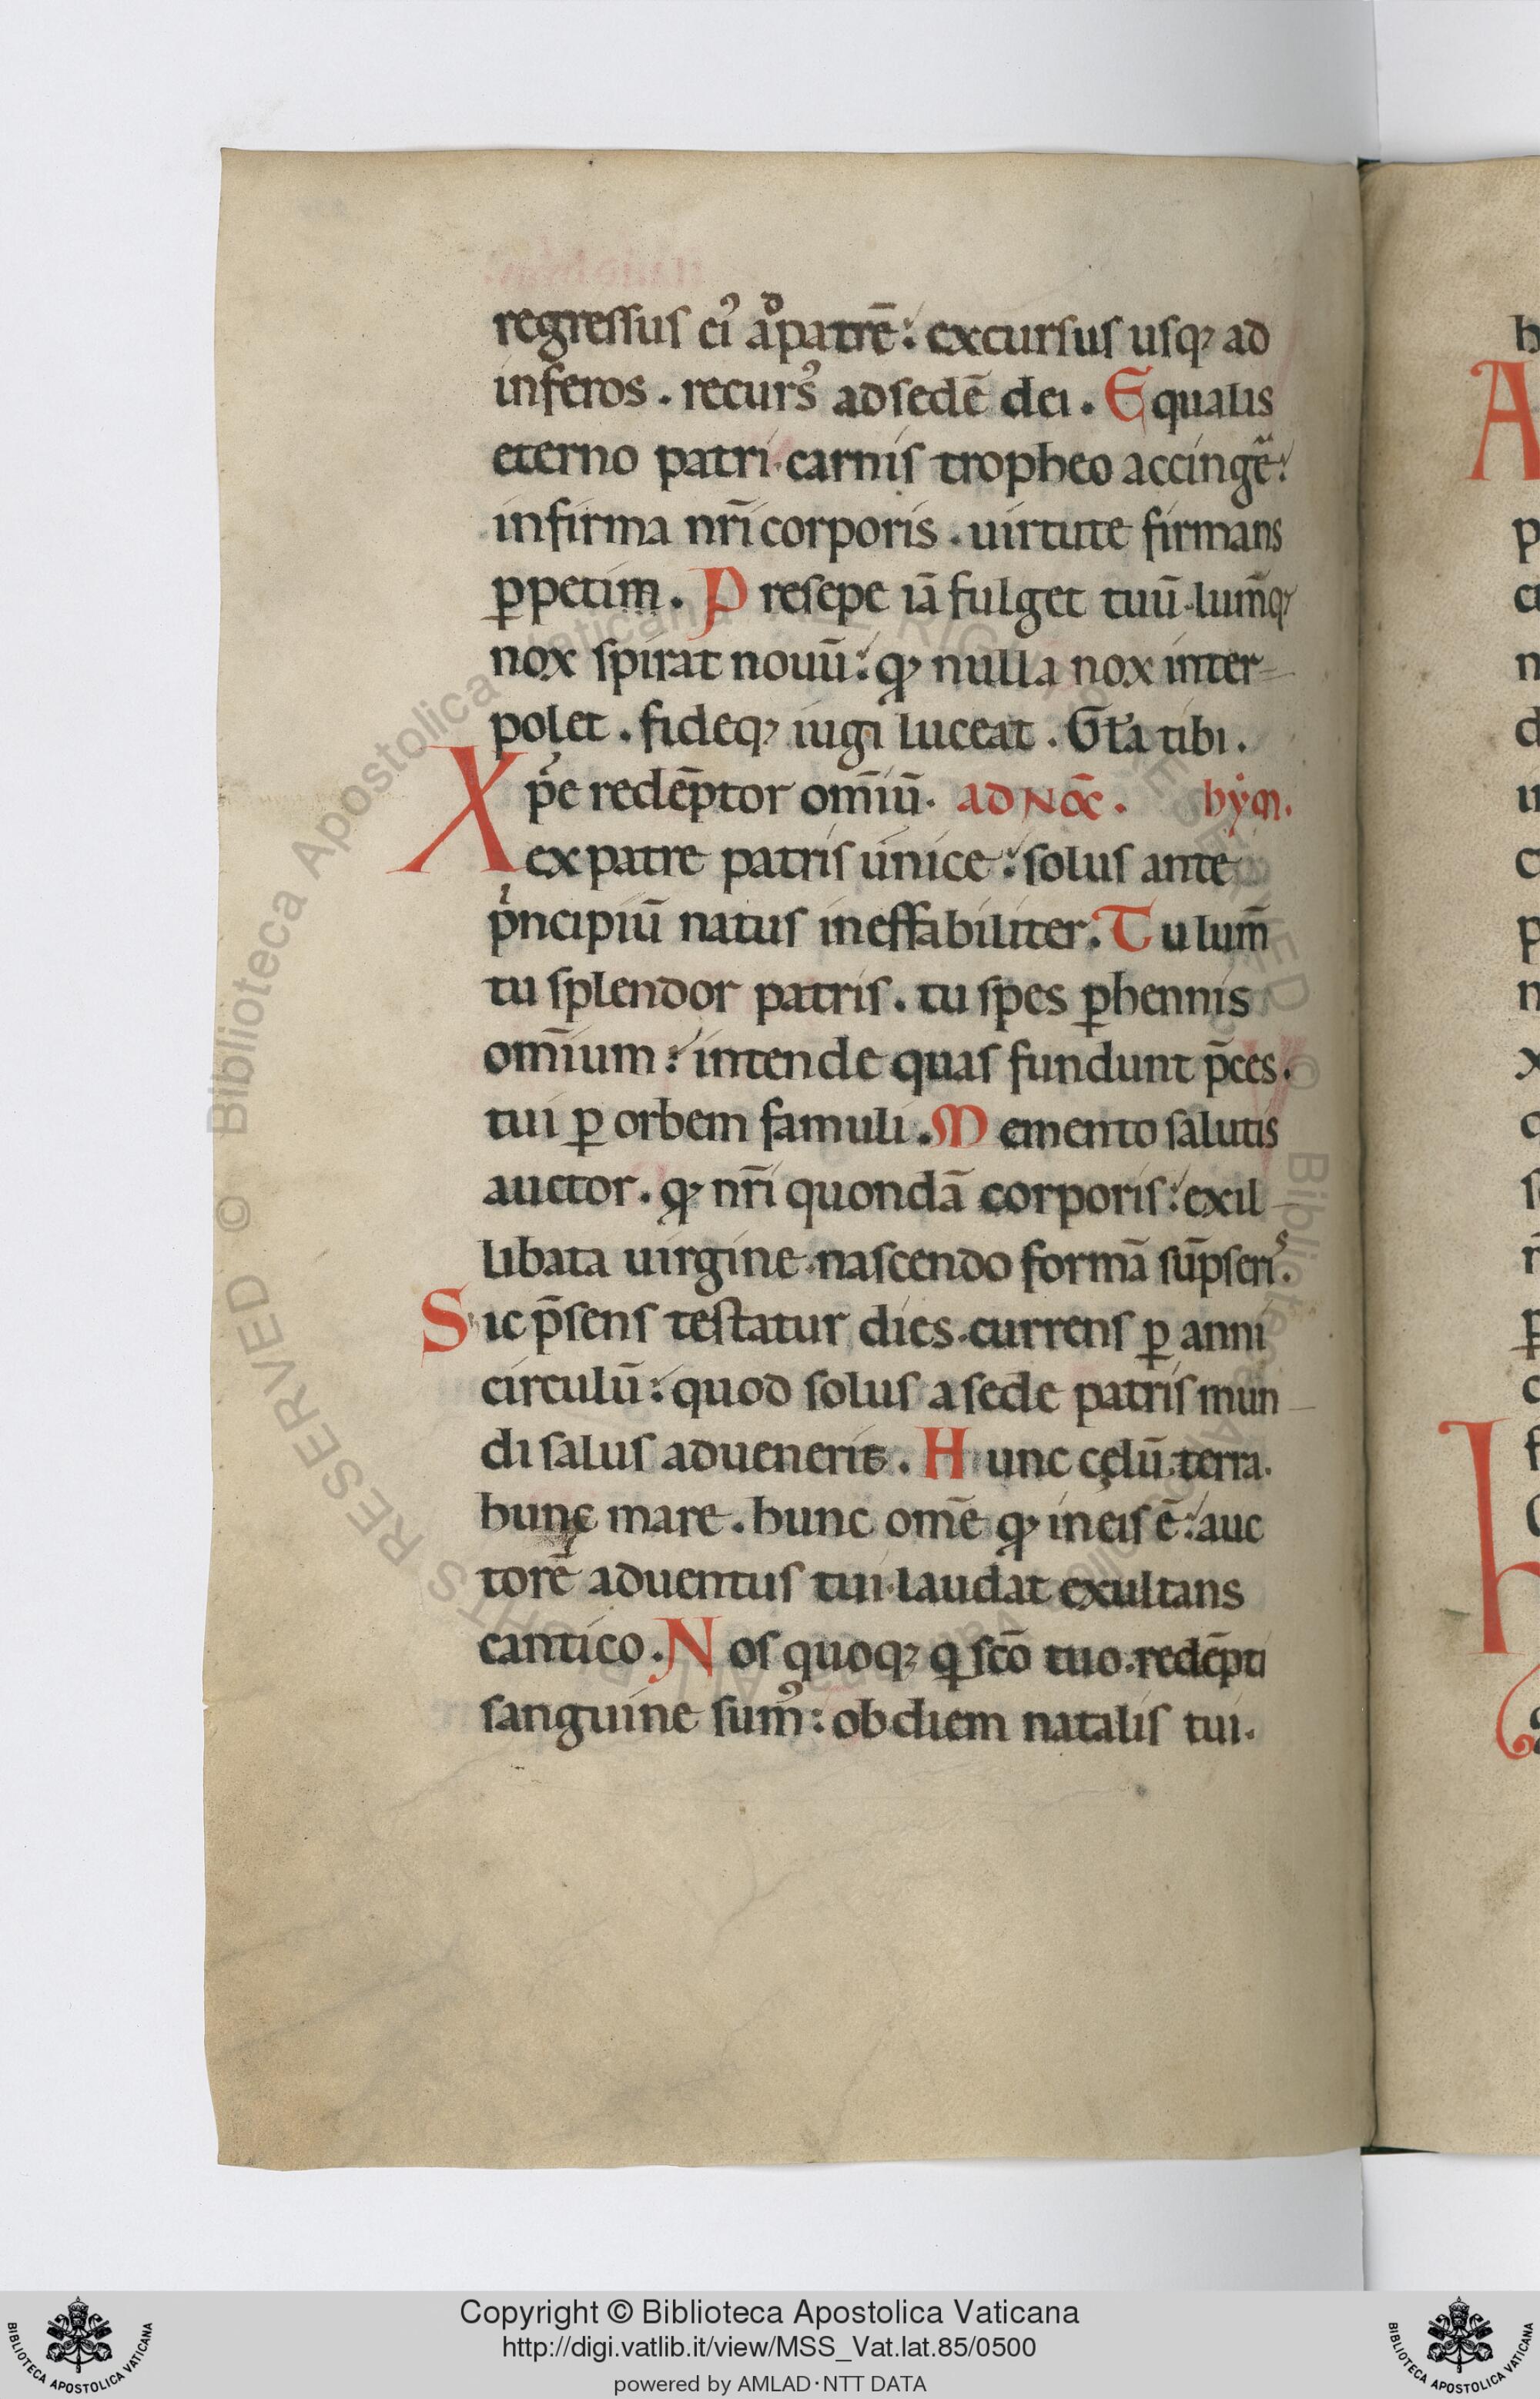 regressus ei᾽ aᵈpatrē: excursus usq; ad
inferos. recurs᾽ ad sedē dei. Equalis
eterno patri carnis tropheo accingē:
infirma nrī corporis. uirtute firmans
ꝑpetim. Presepe iā fulget tuū. lum̄q;
nox spirat nouū: qͦ nulla nox inter-
polet. fideq; iugi luceat. Gła tibi.
Xp̄e redēptor om̄iū. AD NOC̄. hẏm.
ex patre patris unice: solus ante
pⁱncipiū natus ineffabiliter. Tu lum̄
tu splendor patris. tu spes ꝑhennis
om̄ium: intende quas fundunt p̄ces.
tui ꝑ orbem famuli. Memento salutis
auctor. ꝙ nrī quondā corporis: ex il-
libata uirgine. nascendo formā sūpseriˢ.
Sic p̄sens testatur dies. currens ꝑ anni
circulū: quod solus a sede patris mun-
di salus aduenerit. Hunc cęlū. terra.
hunc mare. hunc om̄e ꝙ in eis ē: auc
torē aduentus tui. laudat exultans
cantico. Nos quoq; q̲ scō tuo. redēpti
sanguine sum᾽: ob diem natalis tui.
Copyright © Biblioteca Apostolica Vaticana
http://digi.vatlib.it/view/MSS_Vat.lat.85/0500
powered by AMLAD·NTT DATA
BIBLIOTECA APOSTOLICA VATICANA
BIBLIOTECA APOSTOLICA VATICANA